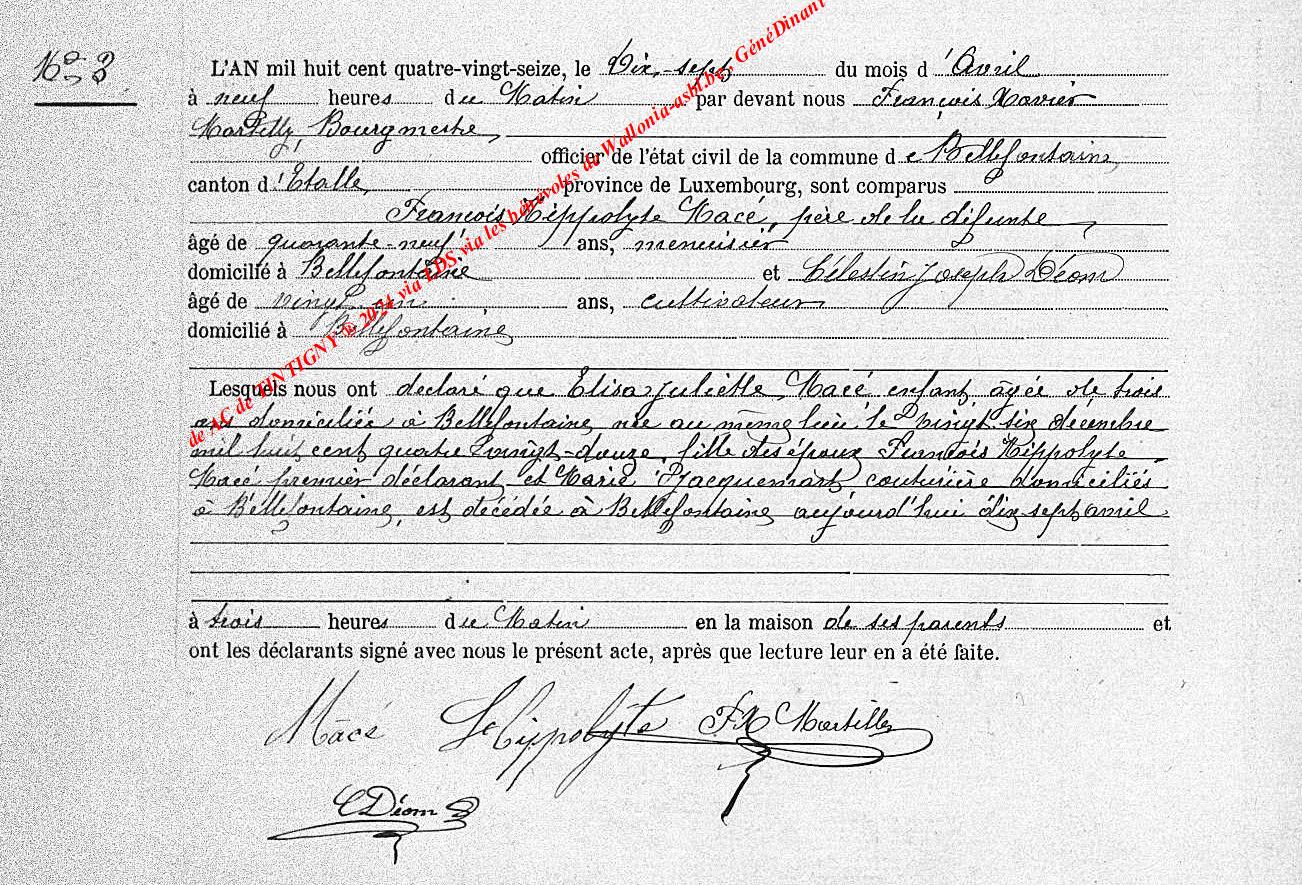 No 3
L'AN mil huit cent quatre-vingt-seize, le Dix-sept du mois d'Avril
à neuf heures du Matin par devant nous François Xavier
Martilly, Bourgmestre,
officier de l'état civil de la commune de Bellefontaine,
canton d'Etalle, province de Luxembourg, sont comparus
François Hippolyte Macé, père de la défunte,
âgé de quarante-neuf ans, menuisier
domicilié à Bellefontaine et Célestin Joseph Déom
âgé de vingt ans, cultivateur
domicilié à Bellefontaine
Lesquels nous ont déclaré que Elisa Juliette Macé enfant âgée de trois
ans domiciliée à Bellefontaine, née au même lieu le vingt six décembre
mil huit cent quatre vingt-douze, fille des époux François Hippolyte
Macé premier déclarant et Marie Jacquemart couturière domiciliés
à Bellefontaine, est décédée à Bellefontaine aujourd'hui dix-sept avril
à trois heures du Matin en la maison de ses parents et
ont les déclarants signé avec nous le présent acte, après que lecture leur en a été faite.
Macé Hippolyte FX Martilly
C Déom
de AC de TINTIGNY © 2024 via FDS via les bénévoles de Wallonia-asbl.be, GénéDinant